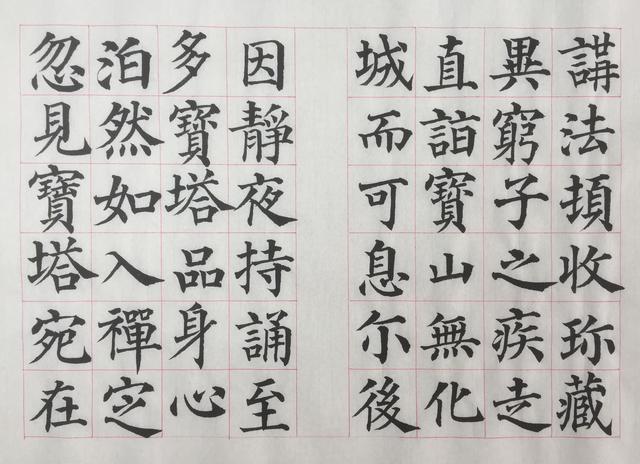 講法頓收珎藏
異窮子之疾走
直詣寶山無化
城而可息尓後
因靜夜持誦至
多寶塔品身心
泊然如入禪定
忽見寶塔宛在